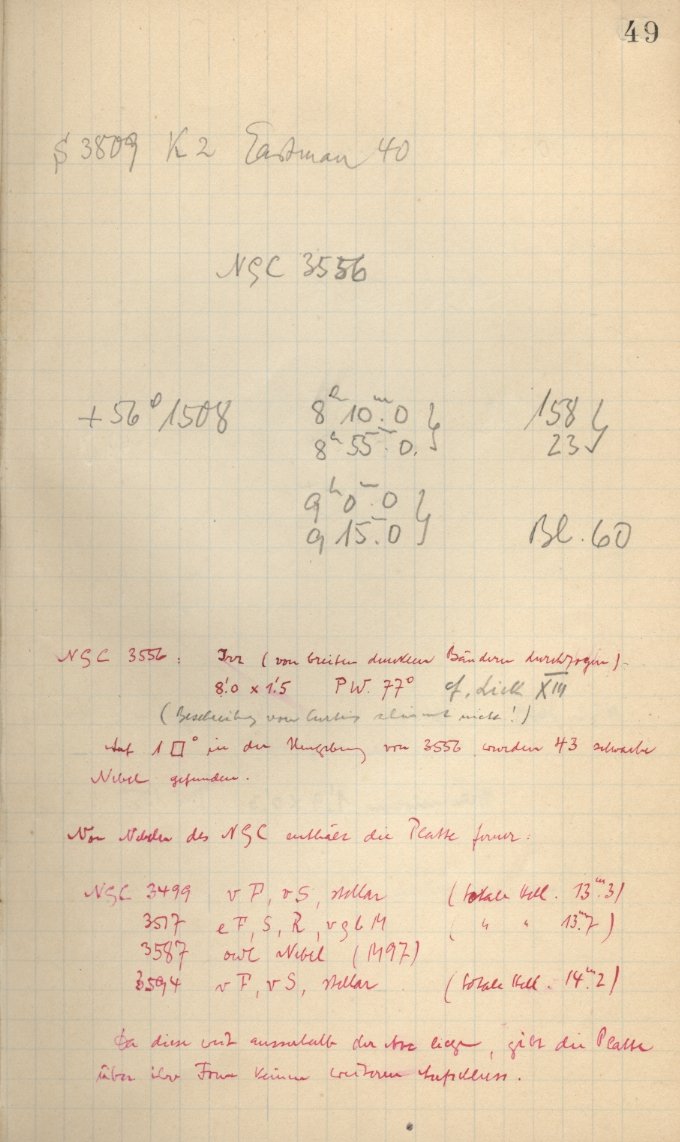 49
S 3809 K2 Eastman 40
NGC 3556
+56° 1508 8h 10m.0 } 158 }
8h 55m.0. } 23 }
9h 0m.0 }
9 15m.0 } Bl. 60
NGC 3556: Irr (von breiten dunklen Bändern durchzogen).
8'.0 x 1'.5 P.W. 77° cf. Lick XIII
(Beschreibung von Curtis stimmt nicht!)
Auf 1 □° in der Umgebung von 3556 wurden 43 schwache
Nebel gefunden.
Von Nebeln des NGC enthält die Platte ferner:
NGC 3499 vF, vS, stellar (totale Hell. 13m.3)
3517 eF, S, R, vgbM ( " " 13m.7)
3587 owl Nebel (M97)
3594 vF, vS, stellar (totale Hell. 14m.2)
Da diese weit ausserhalb der Axe liegen, gibt die Platte
über ihre Form keinen weiteren Aufschluss.